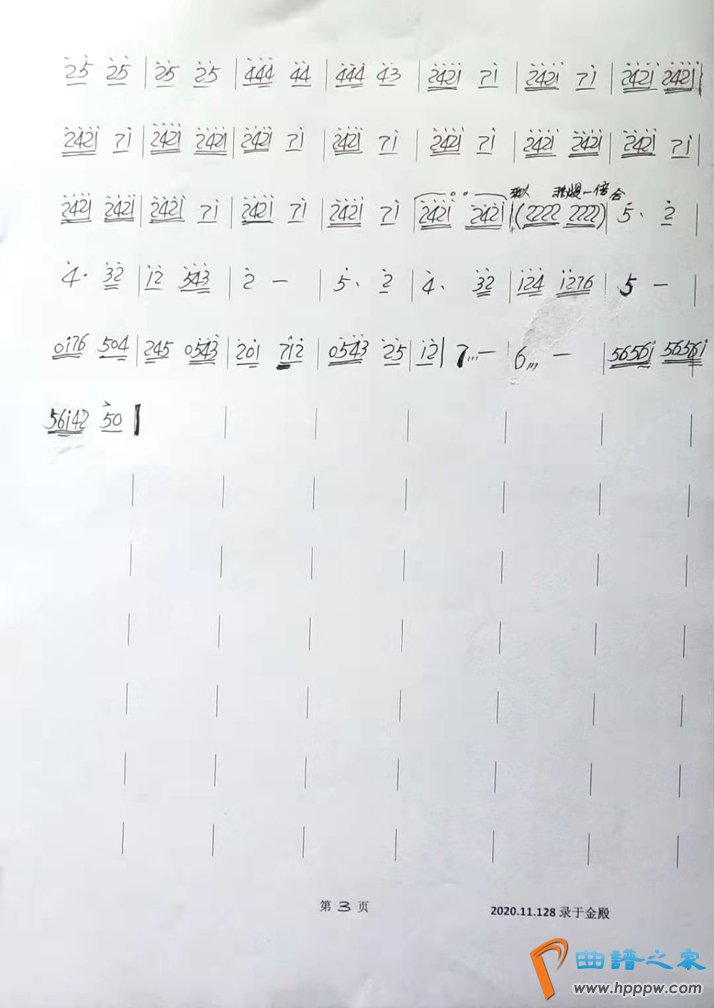 25 25 | 25 25 | 444 44 | 444 43 | 2421 71 | 2421 71 | 2421 2421 |
2421 71 | 2421 2421 | 2421 71 | 2421 71 | 2421 71 | 2421 2421 | 2421 71 |
2421 2421 | 2421 71 | 2421 71 | 2421 71 | 2421 2421 | (2222 222) | 5· 2 |
一倍
4· 32 | 12 543 | 2 — | 5· 2 | 4· 32 | 124 1276 | 5 — |
0176 504 | 245 0543 | 201 712 | 0543 25 | 12 | 7,,, — | 6,,, — | 56561 56561 |
56142 50 |
第 3 页
2020.11.128 录于金殿
曲谱之家
www.hpppw.com